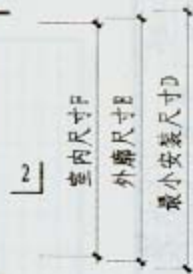 2
室内尺寸F
外廓尺寸B
最小安装尺寸D